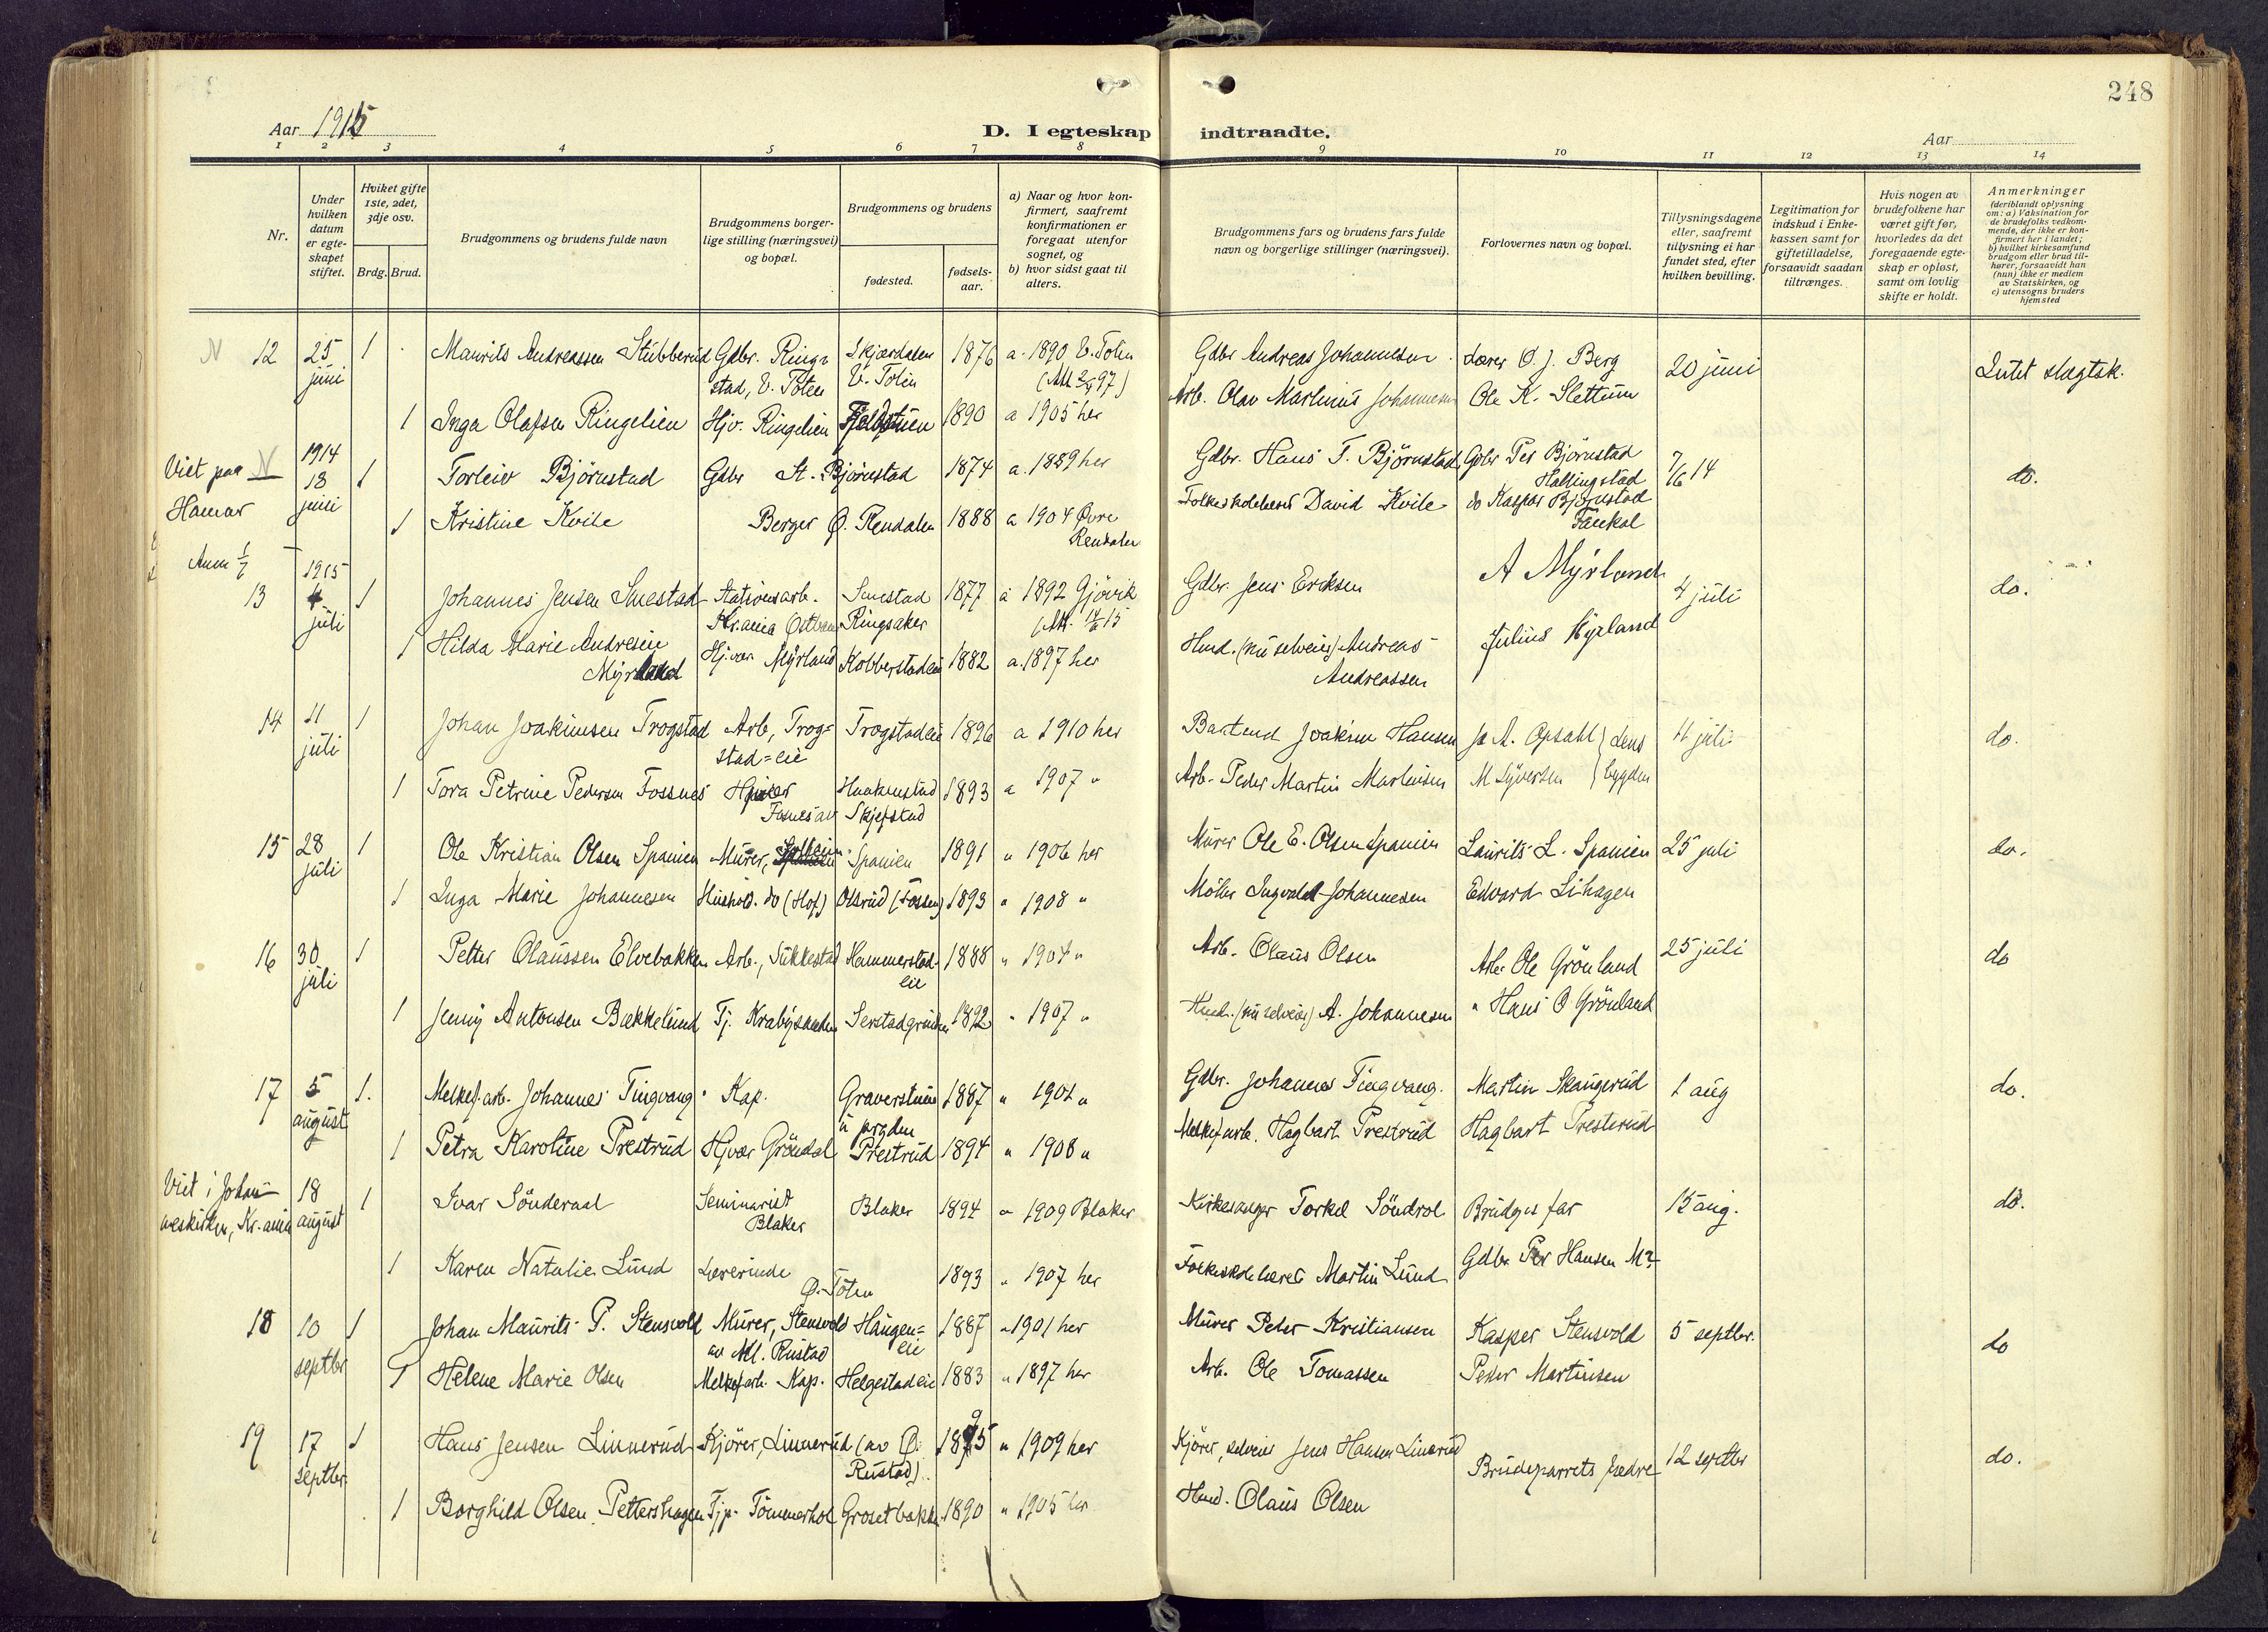 248
Aar 1915
D. I egteskap indtraadte.
Aar
1 2 3 4 5 6 7 8 9 10 11 12 13 14
Nr.
Under hvilken datum er egteskapet stiftet.
Hviket gifte 1ste, 2det, 3dje osv.
Brdg. Brud.
Brudgommens og brudens fulde navn
Brudgommens borgerlige stilling (næringsvei) og bopæl.
Brudgommens og brudens
fødested.
fødselsaar.
a) Naar og hvor konfirmert, saafremt konfirmationen er foregaat utenfor sognet, og
b) hvor sidst gaat til alters.
Brudgommens fars og brudens fars fulde navn og borgerlige stillinger (næringsvei).
Forlovernes navn og bopæl.
Tillysningsdagene eller, saafremt tillysning ei har fundet sted, efter hvilken bevilling.
Legitimation for indskud i Enkekassen samt for giftetilladelse, forsaavidt saadan tiltrænges.
Hvis nogen av brudefolkene har været gift før, hvorledes da det foregaaende egteskap er opløst, samt om lovlig skifte er holdt.
Anmerkninger (deriblandt oplysning om: a) Vaksination for de brudefolks vedkommende, der ikke er konfirmert her i landet; b) hvilket kirkesamfund brudgom eller brud tilhører, forsaavidt han (hun) ikke er medlem av Statskirken, og c) utensogns bruders hjemsted
N 12 25 juni 1 Maurits Andreassen Stubberud Gdbr. Ringstad, V. Toten Skjærdalen V. Toten 1876 a. 1890 V. Toten Gdbr Andreas Johannesen Lærer O. J. Berg 20 juni Intet slegtsk.
1 Inga Olafsen Ringelien Hjv. Ringelien 1890 a 1905 her Arb. Olav Martinus Johannesen Ole K. Slettum
Viet paa Hamar N 1914 13 juni 1 Torleiv Björnstad Gdbr St. Björnstad 1874 a. 1889 her Gdbr. Hans T. Björnstad Gdbr Per Björnstad Hallingstad 7/6 14 do.
1 Kristine Kvile Berger Ø. Rendalen 1888 a 1904 Øvre Rendalen Folkeskolelærer David Kvile do Kaspar Björnstad Faukal
Anm 1/7
13 1915 4 juli 1 Johannes Jensen Smestad Stationsarb. Kr.ania Østban Smestad Ringsaker 1877 a 1892 Gjövik Gdbr. Jens Eriksen A Myrland 4 juli do.
1 Hilda Marie Andresen Myrland Hj.vær Myrland Kobberstadeie 1882 a. 1897 her Husd. (nu selveier) Andreas Andreassen Julius Myrland
14 11 juli 1 Johan Joakimsen Trogstad Arb, Trogstad=eie Trogstadeie 1896 a 1910 her Joakim Hansen Jo A. Opsahl M Syversen } dens bygden 11 juli do.
1 Tora Petrine Pedersen Fossnes Haakenstad Skjefstad 1893 a 1907 " Arb. Peder Martin Martinsen
15 28 juli 1 Ole Kristian Olsen Spanien Murer, Spanien 1891 " 1906 her Murer Ole E. Olsen Spanien Laurits L. Spanien 25 juli do.
1 Inga Marie Johannesen Hushold. do (Hof) Olsrud (Fossen) 1893 " 1908 " Möller Ingvald Johannesen Edvard Lihagen
16 30 juli 1 Petter Olaussen Elvebakken Arb., Sukkestad Hammerstadeie 1888 " 1904 " Arb. Olaus Olsen Arb. Ole Grönland 25 juli do
1 Jenny Antonsen Bækkelund Tj. Krabyskaden 1892 " 1907 " Husm. (nu selveier) A. Johannesen " Hans O. Grönland
17 5 august 1. Melkef.arb. Johannes Tingvang Kap. 1887 " 1901 " Gdbr. Johannes Tingvang. Martin Skaugerud 1 aug do.
1 Petra Karoline Prestrud Hjvær Gröndal Prestrud 1894 " 1908 " Melkefarb. Hagbart Prestrud Hagbart Presterud
Viet i Johanneskirken, Kr.ania 18 august 1 Ivar Sönderaal Seminarist Blaker Blaker 1894 a 1909 Blaker Kirkesanger Torkel Söndrol Brudgs far 15 aug. do.
1 Karen Natalie Lund Lærerinde Ø. Toten 1893 " 1907 her Folkeskolelærer Martin Lund Gdbr. Per Hansen
18 10 septbr 1 Johan Maurits P. Stensvold Murer, Stensvold av Ml. Rustad Haugen=eie 1887 " 1901 her Murer Peder Kristiansen Kasper Stensvold 5 septbr. do
1 Helene Marie Olsen Melkefarb. Kap. Helgestadeie 1883 " 1897 her Arb. Ole Tomassen Peder Martinsen
19 17 septbr. 1 Hans Jensen Linnerud Kjörer, Linnerud (av Ø. Rustad) 1895 " 1909 her Kjörer, selveier Jens Hansen Linerud Brudeparrets fedre 12 septbr do.
1 Borghild Olsen Pettershagen Tjp. Tömmerhol Grosetbakke 1890 " 1905 her Husd. Olaus Olsen